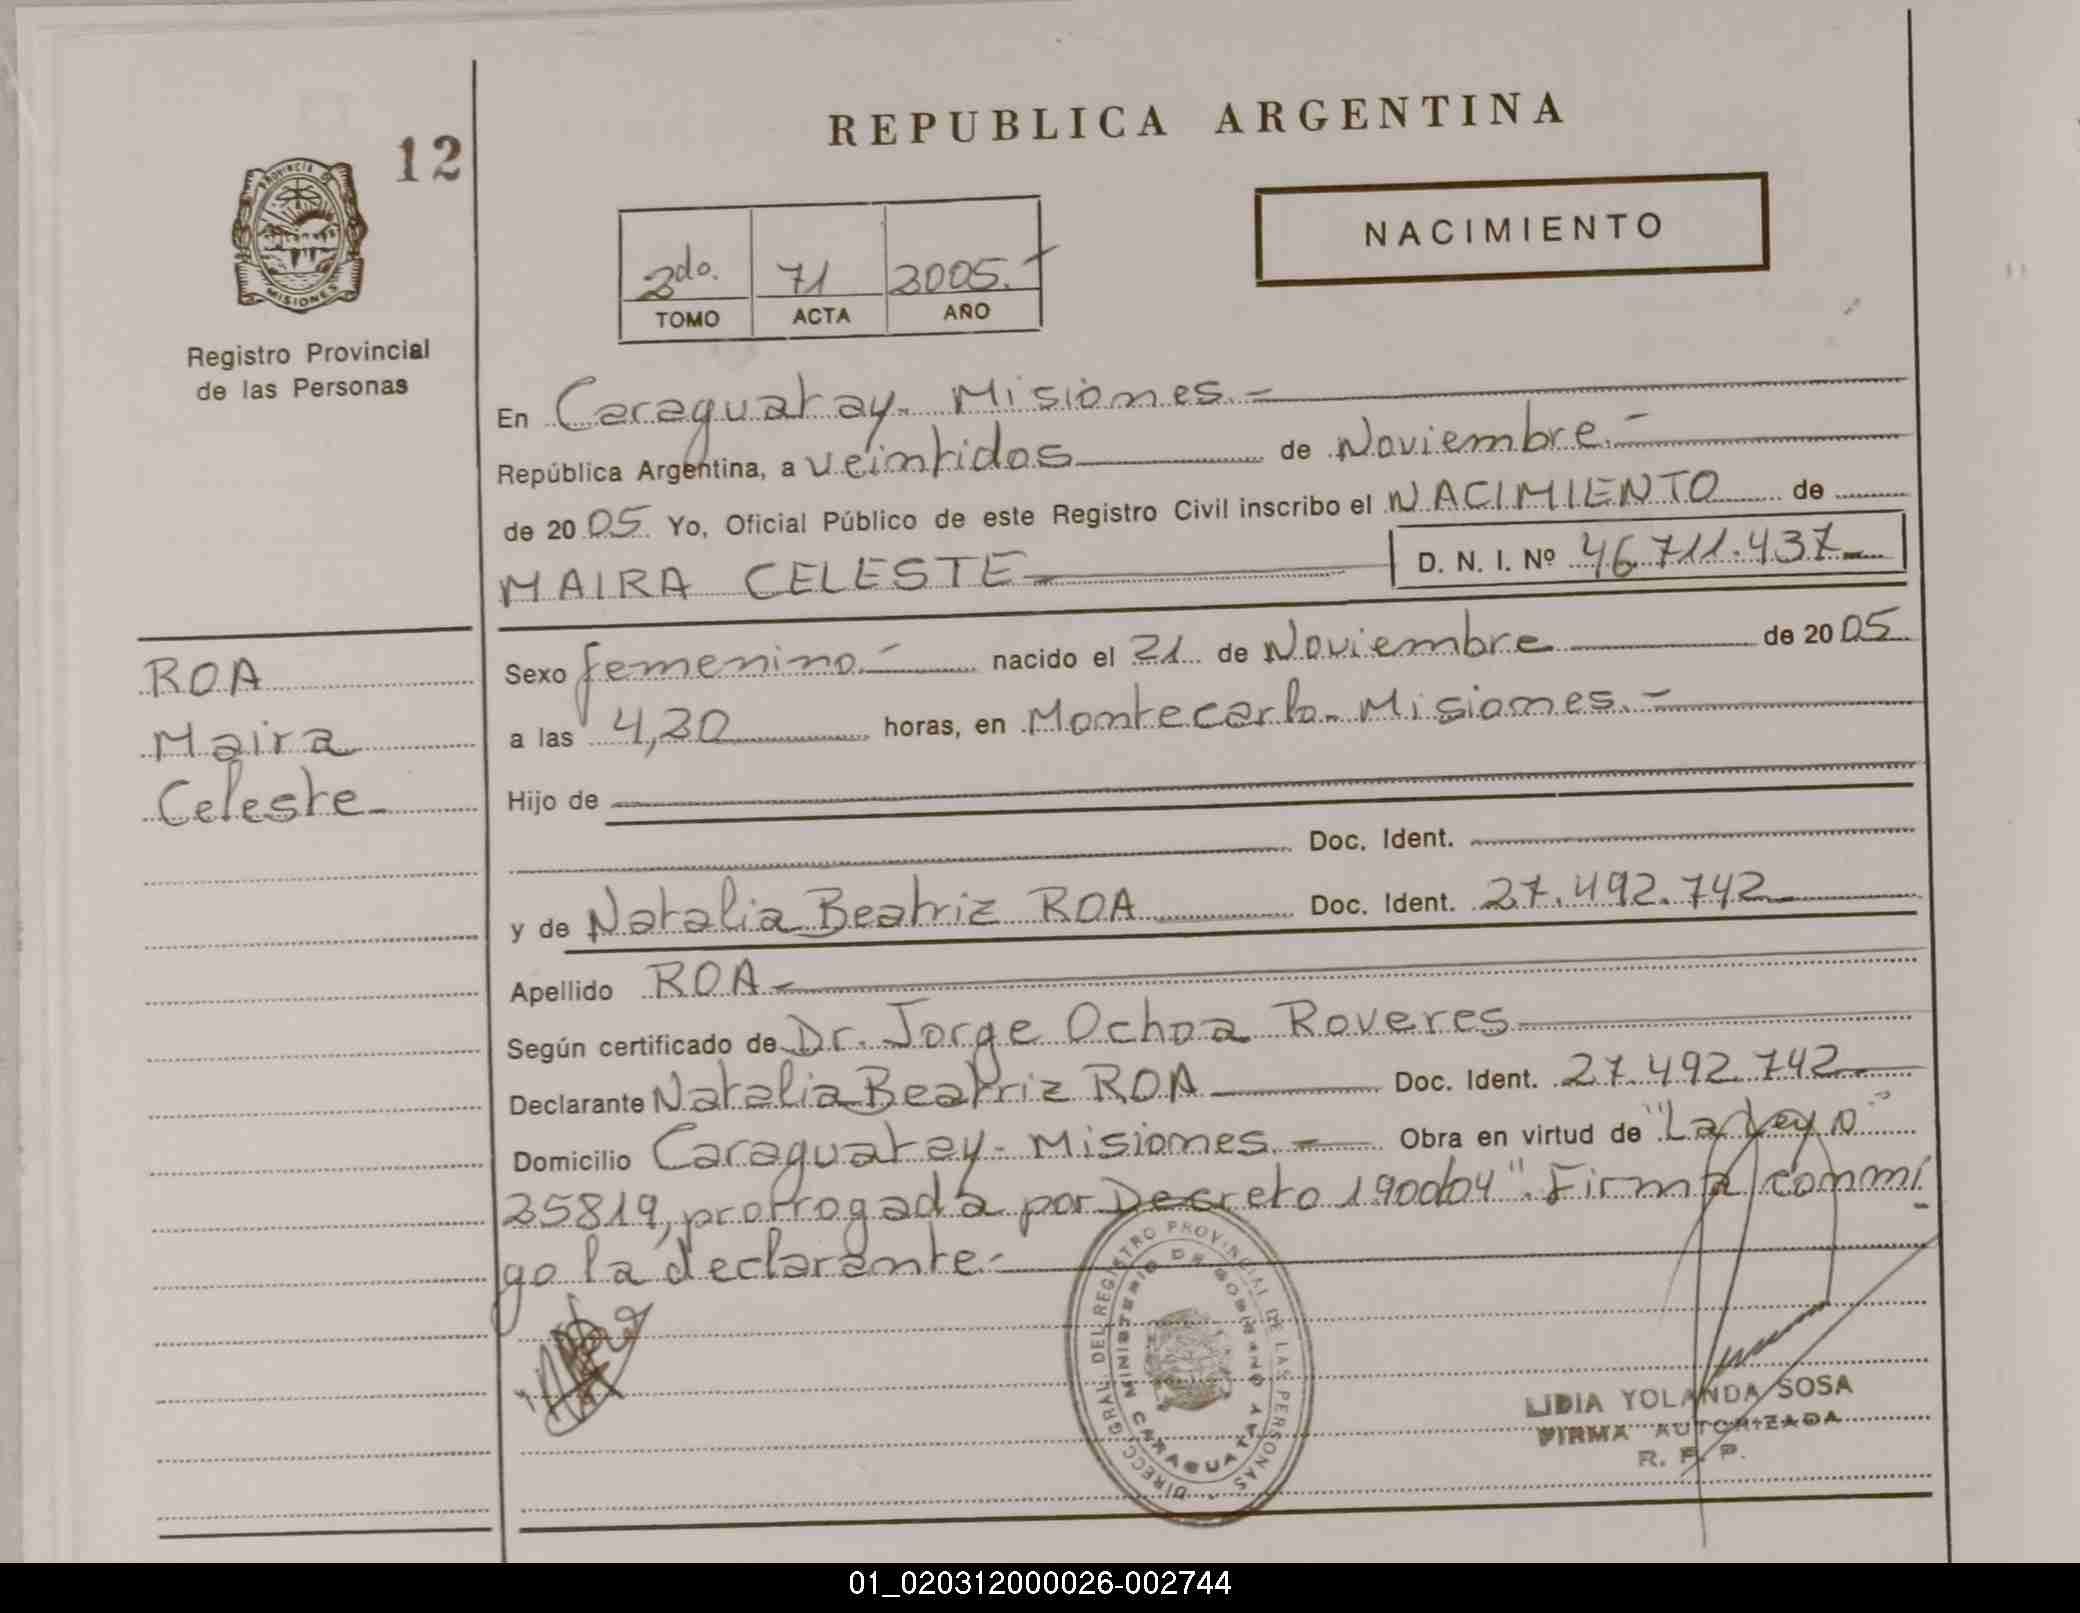 REPUBLICA ARGENTINA
12
PROVINCIA DE
MISIONES
Registro Provincial
de las Personas
NACIMIENTO
2do. 71 2005.-
TOMO ACTA AÑO
En Caraguatay. Misiones.-
República Argentina, a veintidos de Noviembre.-
de 20 05. Yo, Oficial Público de este Registro Civil inscribo el NACIMIENTO de
MAIRA CELESTE D. N. I. Nº 46.711.437
ROA
Maira
Celeste
Sexo femenino.- nacido el 21 de Noviembre de 20 05
a las 4,30 horas, en Montecarlo. Misiones.-
Hijo de
Doc. Ident.
y de Natalia Beatriz ROA Doc. Ident. 27.492.742
Apellido ROA
Según certificado de Dr. Jorge Ochoa Roveres
Declarante Natalia Beatriz ROA Doc. Ident. 27.492.742
Domicilio Caraguatay- Misiones.- Obra en virtud de "La Ley
25819, prorrogada por Decreto 190004". Firma conmi
go la declarante.-
DIRECC GRAL. DEL REGISTRO PROVINCIAL DE LAS PERSONAS
MINISTERIO DE GOBIERNO
CARAGUATAY
LIDIA YOLANDA SOSA
FIRMA AUTORIZADA
R. P. P.
01_020312000026-002744